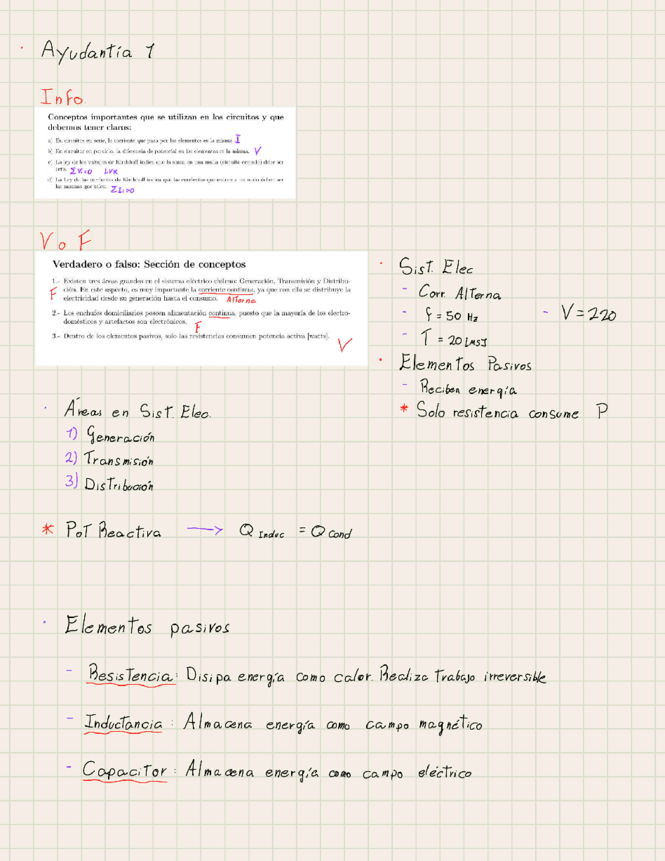 Ayudantía 1
Info.
Conceptos importantes que se utilizan en los circuitos y que
debemos tener claros:
a) En circuitos en serie, la corriente que pasa por los elementos es la misma. I
b) En circuitos en paralelo, la diferencia de potencial en los elementos es la misma. V
c) La ley de los voltajes de Kirchhoff indica que la suma en una malla (circuito cerrado) debe ser
cero. ΣV=0 LVK
d) La Ley de las corrientes de Kirchhoff indica que las corrientes que entran a un nodo deben ser
las mismas que salen. ΣI=0
V o F
Verdadero o falso: Sección de conceptos
1.- Existen tres áreas grandes en el sistema eléctrico chileno: Generación, Transmisión y Distribu-
F ción. En este aspecto, es muy importante la corriente continua, ya que con ella se distribuye la
electricidad desde su generación hasta el consumo. Alterna
2.- Los enchufes domiciliarios poseen alimentación continua, puesto que la mayoría de los electro-
domésticos y artefactos son electrónicos. F
3.- Dentro de los elementos pasivos, solo las resistencias consumen potencia activa [watts]. V
· Sist. Elec
- Corr. Alterna
- f = 50 Hz - V = 220
- T = 20 [ms]
· Elementos Pasivos
- Reciben energía
* Solo resistencia consume P
· Áreas en Sist. Elec.
1) Generación
2) Transmisión
3) Distribución
* Pot Reactiva → Q Induc = Q Cond
· Elementos pasivos
- Resistencia: Disipa energía como calor. Realiza Trabajo irreversible
- Inductancia: Almacena energía como campo magnético
- Capacitor: Almacena energía como campo eléctrico